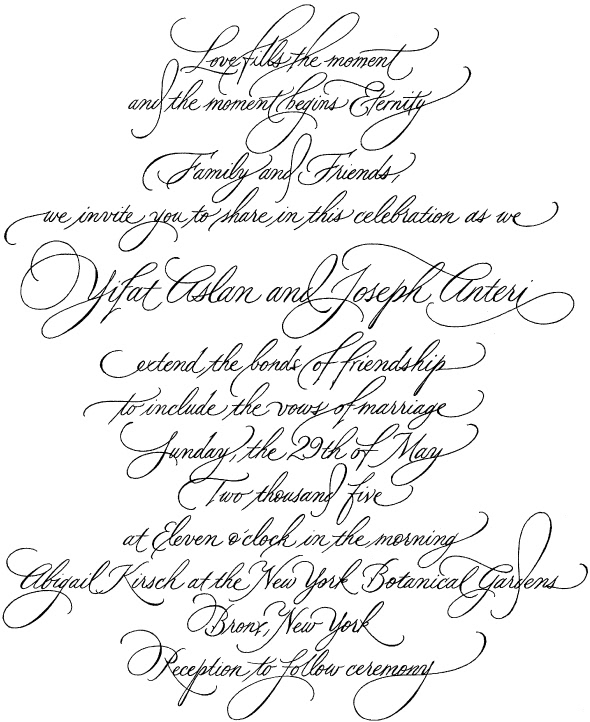 Love fills the moment
and the moment begins Eternity
Family and Friends,
we invite you to share in this celebration as we
Yifat Aslan and Joseph Anteri
extend the bonds of friendship
to include the vows of marriage
Sunday, the 29th of May
Two thousand five
at Eleven o'clock in the morning
Abigail Kirsch at the New York Botanical Gardens
Bronx, New York
Reception to follow ceremony